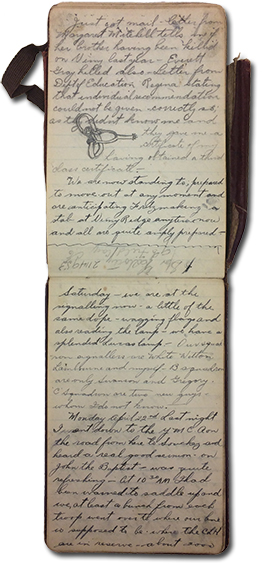 Just got mail - letter from
Margaret Mitchell tells me of
her brother having been killed
on Vimy last year - Everett
Gray killed also - Letter from
Dept of Education Regina stating
that individual recommendation
could not be given correctly as
they didn't know me and
they gave me a
certificate of my
having obtained a third
class certificate -
We are now standing to, prepared
to move out at any moment and
are anticipating Fritz making a
stab at Vimy Ridge anytime now
and all are quite amply prepared -
Saturday - we are at the
signalling now - a little of the
same dope - wagging flags and
also reading the lamp - we have a
splendid lamp - Our squadron
now signallers are White Wilton
and myself. B squadron
are only Swanson and Gregory.
C Squadron are two new guys -
whom I do not know.
Monday April 22nd Last night
I went down to the Y M C A on
the road from here to Souchez and
heard a real good sermon - on
John the Baptist - was quite
refreshing - At 10 AM I had
been warned to saddle up and
we, at least a bunch from each
troop went over to where our line
is supposed to be where the CLH
are in reserve - about